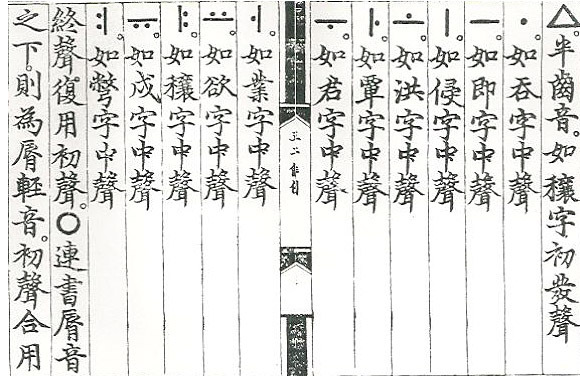 ㅿ。半齒音。如穰字初發聲
ㆍ。如呑字中聲
ㅡ。如即字中聲
ㅣ。如侵字中聲
ㅗ。如洪字中聲
ㅏ。如覃字中聲
ㅜ。如君字中聲
ㅓ。如業字中聲
ㅛ。如欲字中聲
ㅑ。如穰字中聲
ㅠ。如戌字中聲
ㅕ。如彆字中聲
終聲復用初聲。○連書脣音
之下。則為脣輕音。初聲合用